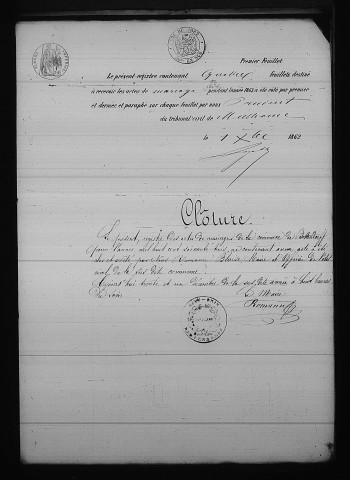 Premier Feuillet
Le présent registre contenant quatre feuillets destiné
à recevoir les actes de mariage pendant l'année 1863 a été coté par premier
et dernier et paraphé sur chaque feuillet par nous Président
du tribunal civil de Mulhouse
le 1 Xbre 1862
Clôture.
Le présent registre des actes de mariages de la commune de
pour l'année mil huit cent soixante trois, ne contenant aucun acte a été
clos et arrêté par Nous Romann Blaise, Maire et Officier de l'état
civil de la sus dite commune.
Aujourd'hui trente et un décembre de la sus dite année à huit heures
du soir
Le Maire
Romann